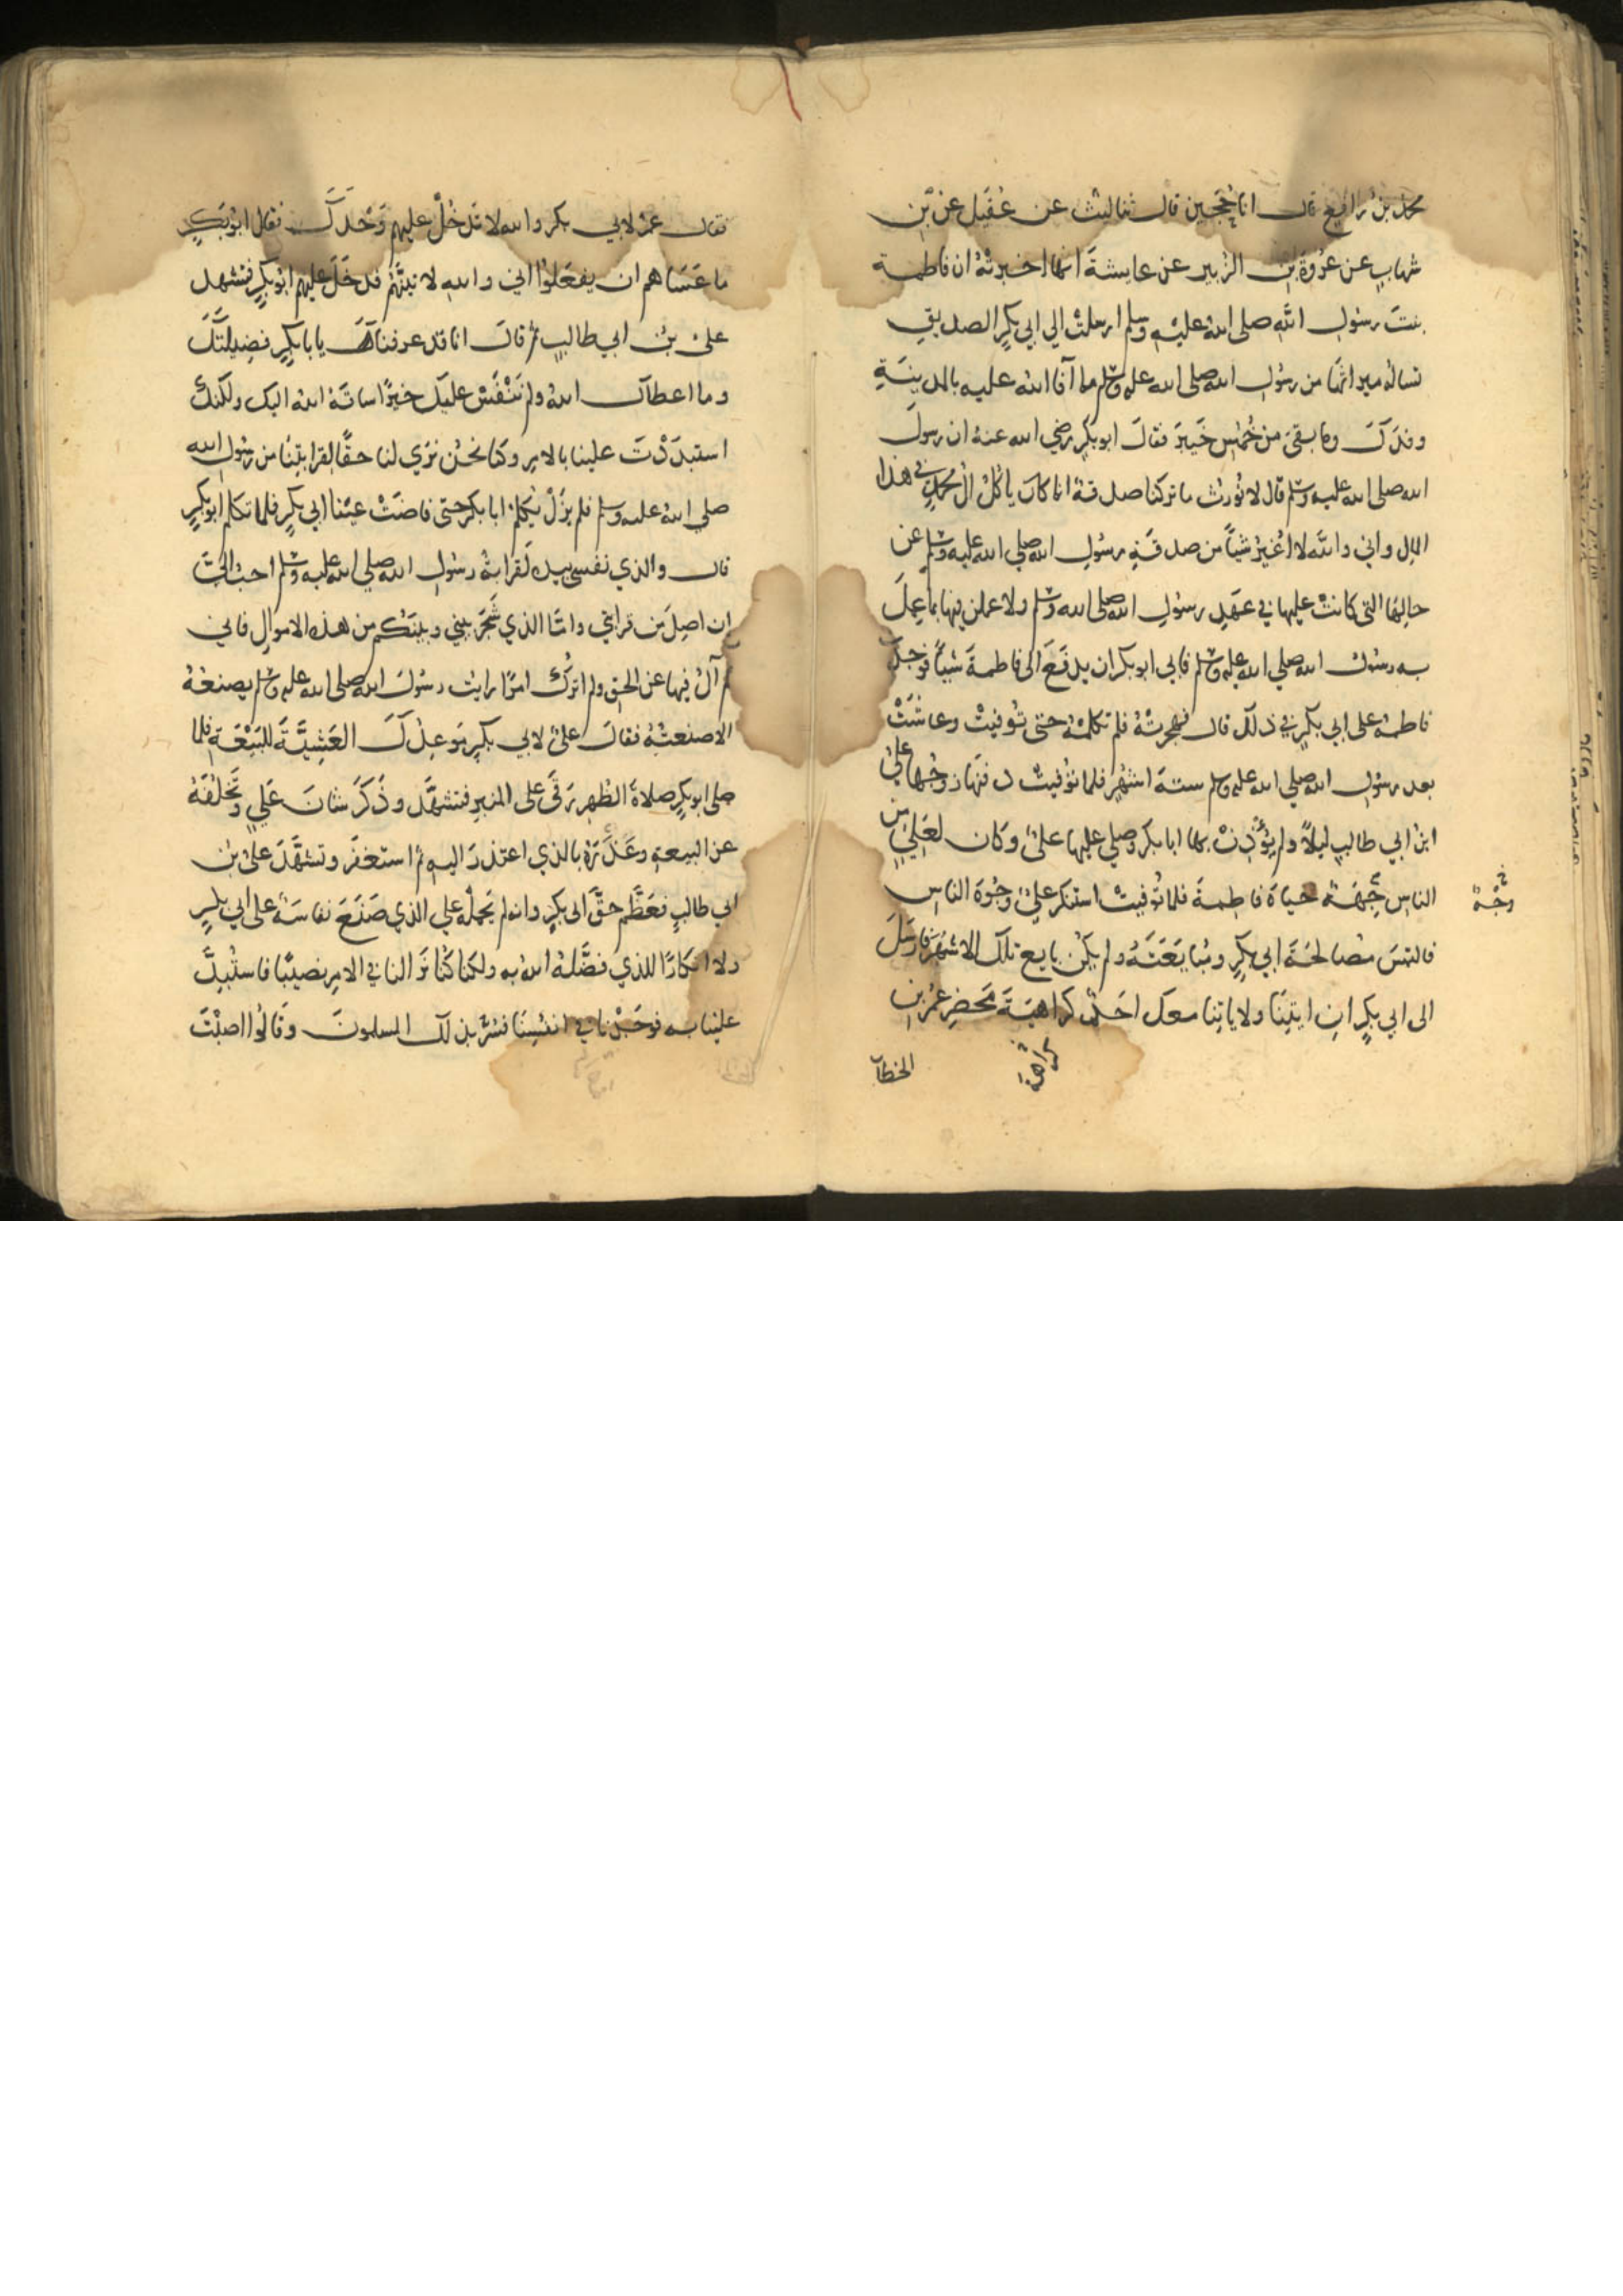 محمد بن رافع قال انا حجين قال ثنا ليث عن عقيل عن بن
شهاب عن عروة بن الزبير عن عايشة انها اخبرته ان فاطمة
بنت رسول الله صلى الله عليه وسلم ارسلت الي ابي بكر الصديق
تساله ميراثها من رسول الله صلى الله عليه وسلم مما آفا الله عليه بالمدينة
وفدك وما بقى من خمس خيبر فقال ابو بكر رضي الله عنه ان رسول
الله صلى الله عليه وسلم قال لا نورث ما تركنا صدقة انما كان ياكل ال محمد في هذا
المال واني والله لا اغير شيا من صدقة رسول الله صلي الله عليه وسلم عن
حالها التي كانت عليها في عهد رسول الله صلى الله وسلم ولا عملن فيها بما عمل
به رسول الله صلي الله عليه وسلم فابي ابو بكر ان يدفع الى فاطمة شيا فوجدت
فاطمة على ابي بكر في ذلك قال فهجرته فلم تكلمه حتى توفيت وعاشت
بعد رسول الله صلي الله عليه وسلم ستة اشهر فلما توفيت دفنها زوجها علي
ابن ابي طالب ليلا ولم يؤذن بها ابا بكر وصلي عليها علي وكان لعلي من
الناس جهة حياة فاطمة فلما توفيت استنكر علي وجوه الناس
وجهة
فالتمس مصالحة ابي بكر ومبايعته ولم يكن بايع تلك الاشهر فارسل
الى ابي بكر ان ايتنا ولا ياتنا معك احد كراهية محضر عمر بن
كراهة
الخطاب
فقال عمر لابي بكر والله لا تدخل عليهم وحدك فقال ابو بكر
ما عساهم ان يفعلوا اني والله لاتينهم فدخل عليهم ابو بكر فتشهد
علي بن ابي طالب ثم قال انا قد عرفنا يابا بكر فضيلتك
وما اعطاك الله ولم ننفس عليك خيرا ساقه الله اليك ولكنك
استبددت علينا بالامر وكنا نحن نري لنا حقا لقرابتنا من رسول الله
صلي الله عليه وسلم فلم يزل يكلم ابا بكر حتى فاضت عينا ابي بكر فلما تكلم ابو بكر
قال والذي نفسي بيده لقرابة رسول الله صلي الله عليه وسلم احب الي
ان اصل من قرابتي واما الذي شجر بيني وبينكم من هذه الاموال فاني
لم آل فيها عن الحق ولم اترك امرا رايت رسول الله صلى الله عليه وسلم يصنعه
الا صنعته فقال علي لابي بكر موعدك العشية للبيعة فلما
صلى ابو بكر صلاة الظهر رقى على المنبر فتشهد وذكر شان علي وتخلفه
عن البيعة وعذره بالذي اعتذر اليه ثم استغفر وتشهد علي بن
ابي طالب فعظم حق ابى بكر وانه لم يحمله علي الذي صنع نفاسة على ابي بكر
ولا انكارا للذي فضله الله به ولكنا كنا نرا لنا في الامر نصيبا فاستبد
علينا به فوجدنا في انفسنا فسر بذلك المسلمون وقالوا اصبت